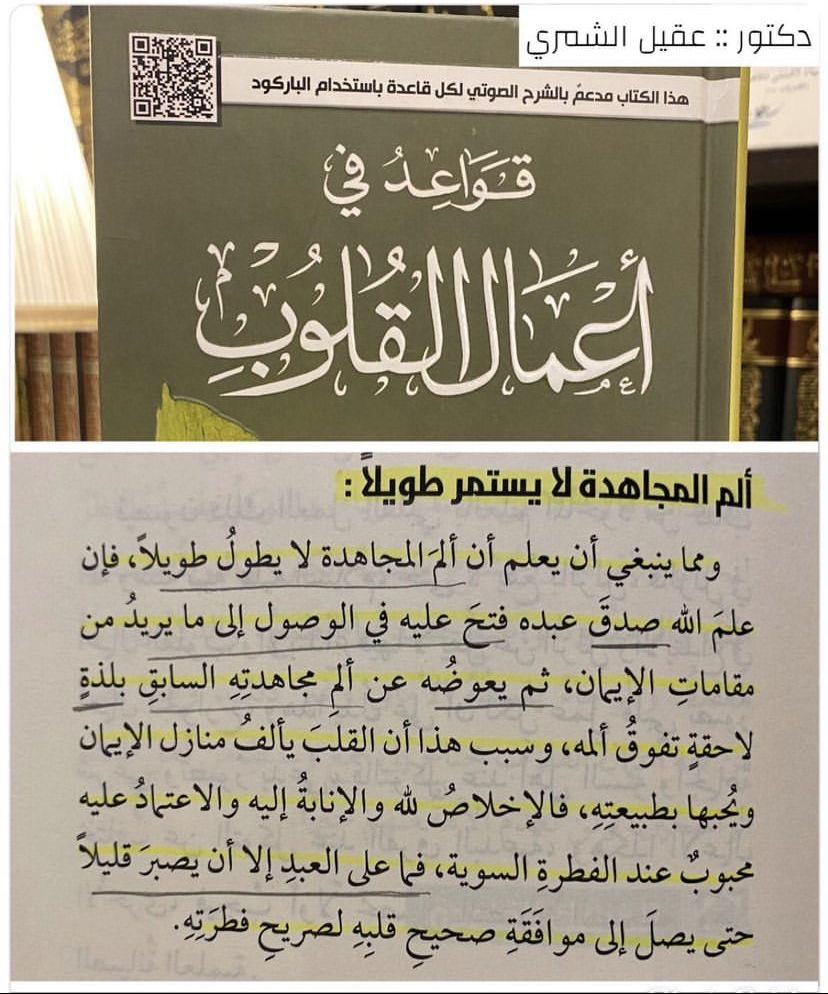 دكتور :: عقيل الشمري
هذا الكتاب مدعمٌ بالشرح الصوتي لكل قاعدة باستخدام الباركود
قَوَاعِدُ فِي
أَعْمَالِ الْقُلُوبِ
ألم المجاهدة لا يستمر طويلاً :
ومما ينبغي أن يعلم أن ألمَ المجاهدة لا يطولُ طويلاً، فإن
علمَ الله صدقَ عبده فتحَ عليه في الوصول إلى ما يريدُ من
مقاماتِ الإيمان، ثم يعوضُه عن ألمِ مجاهدتِهِ السابقِ بلذةٍ
لاحقةٍ تفوقُ ألمه، وسبب هذا أن القلبَ يألفُ منازل الإيمان
ويُحبها بطبيعتِهِ، فالإخلاصُ لله والإنابةُ إليه والاعتمادُ عليه
محبوبٌ عند الفطرةِ السوية، فما على العبدِ إلا أن يصبرَ قليلاً
حتى يصلَ إلى موافَقَةِ صحيحِ قلبِهِ لصريحِ فطرَتِهِ.